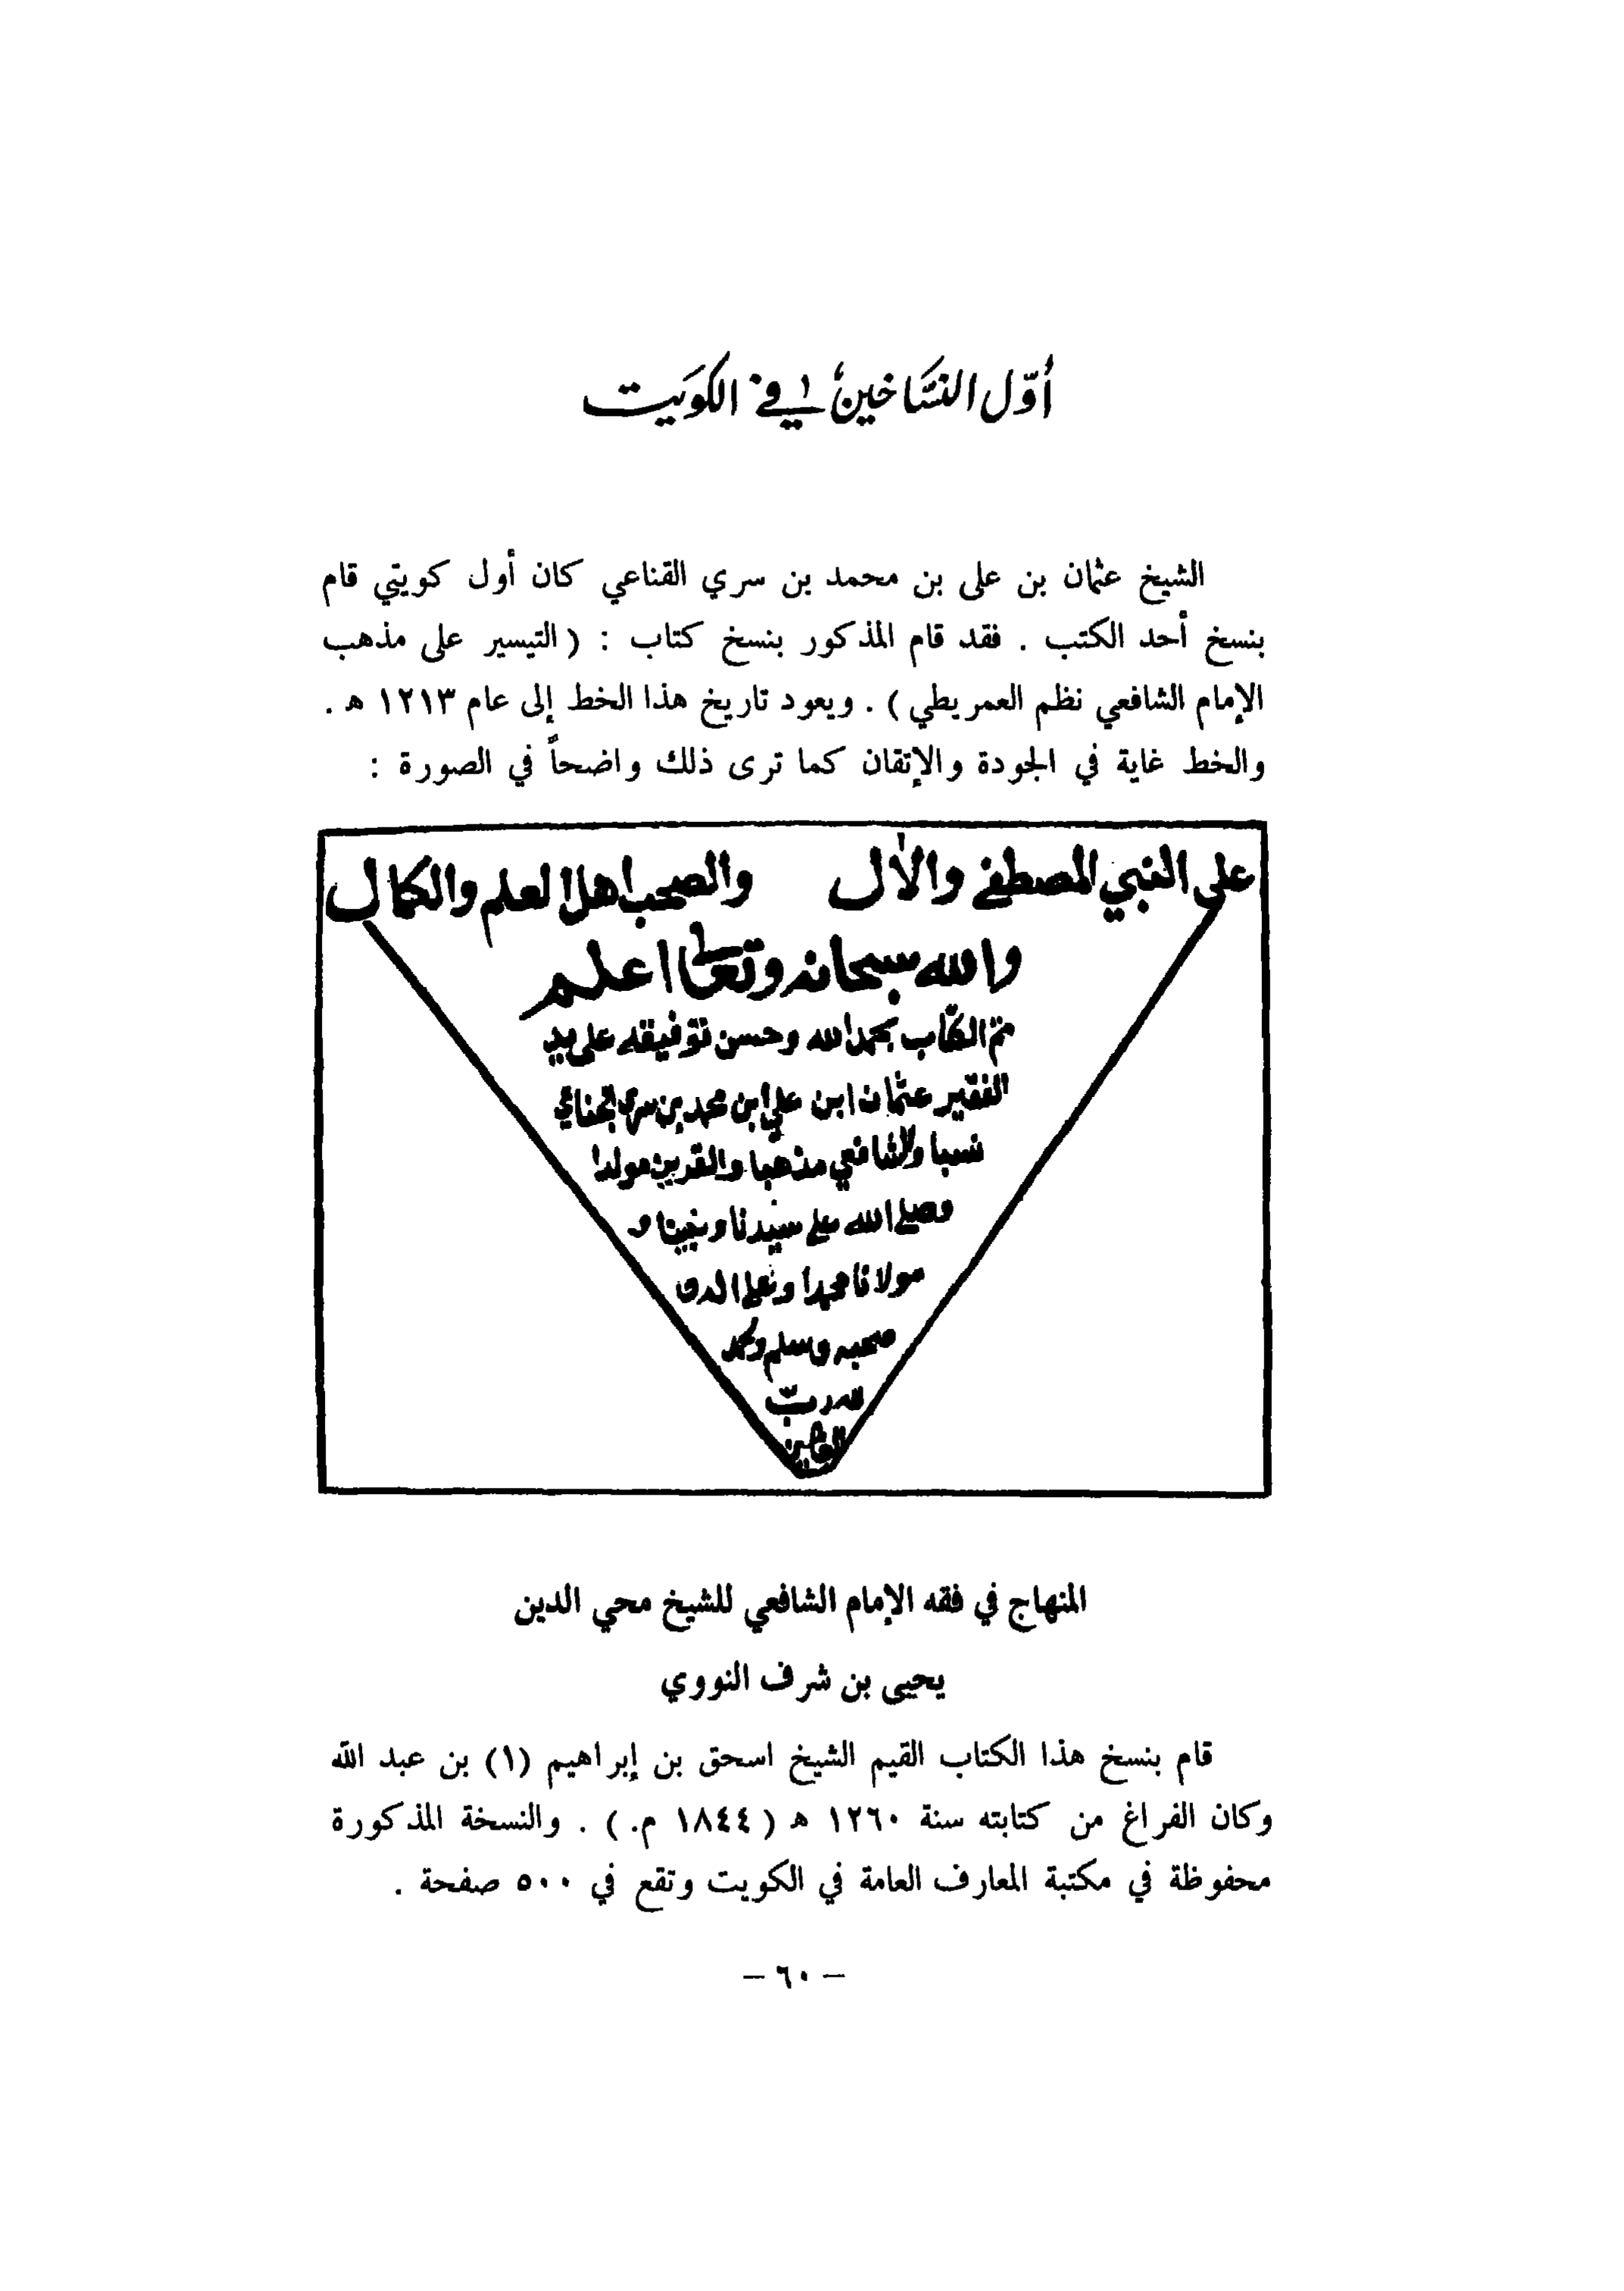 أوّل النسَّاخين في الكويت
الشيخ عثمان بن على بن محمد بن سري القناعي كان أول كويتي قام
بنسخ أحد الكتب . فقد قام المذكور بنسخ كتاب : ( التيسير على مذهب
الإمام الشافعي نظم العمريطي ) . ويعود تاريخ هذا الخط إلى عام ١٢١٣ ه .
والخط غاية في الجودة والإتقان كما ترى ذلك واضحاً في الصورة :
على النبي المصطفى والال والصحب اهل العلم والكمال
والله سبحانه وتعالى اعلم
تم الكتاب بحمد الله وحسن توفيقه على يد
الفقير عثمان ابن علي ابن محمد بن سري
نسبا والشافعي مذهبا والقرين مولدا
وصلى الله على سيدنا ونبينا و
مولانا محمدا وعلى اله و
صحبه وسلم والحمد
لله ربّ
العالمين
المنهاج في فقه الإمام الشافعي للشيخ محي الدين
يحيى بن شرف النووي
قام بنسخ هذا الكتاب القيم الشيخ اسحق بن إبراهيم (١) بن عبد الله
وكان الفراغ من كتابته سنة ١٢٦٠ ه ( ١٨٤٤ م. ) . والنسخة المذكورة
محفوظة في مكتبة المعارف العامة في الكويت وتقع في ٥٠٠ صفحة .
– ٦٠ –